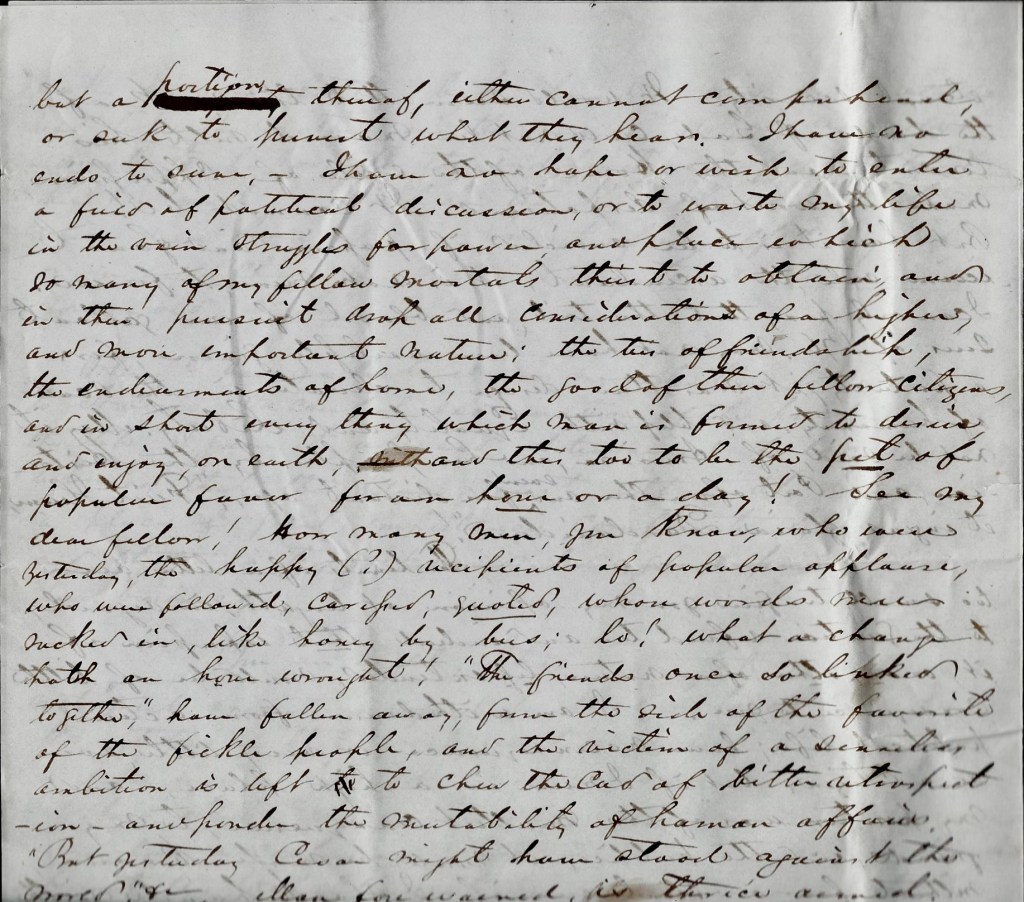 but a portion thereof, either cannot comprehend,
or seek to pervert what they hear. I have no
ends to serve, – I have no hope or wish to enter
a field of political discussion, or to waste my life
in the vain struggles for power and place which
so many of my fellow mortals thirst to obtain, and
in their pursuit drop all considerations of a higher,
and more important nature; the ties of friendship,
the endearments of home, the good of their fellow citizens,
and in short every thing which man is formed to desire
and enjoy, on earth, and this too to be the pet of
popular favor for an hour or a day! See my
dear fellow! How many men, you know, who were
yesterday, the happy (?) recipients of popular applause,
who were followed, caressed, quoted, whose words were
sucked in, like honey by bees; lo! what a change
hath an hour wrought! "The friends once so linked
together," have fallen away, from the side of the favorite
of the fickle people, and the victim of a senseless
ambition is left to chew the Cud of bitter retrospect
-ion – and ponder the mutability of human affairs.
"But yesterday Cesar might have stood against the
world," &c. Man forewarned, is thrice armed.